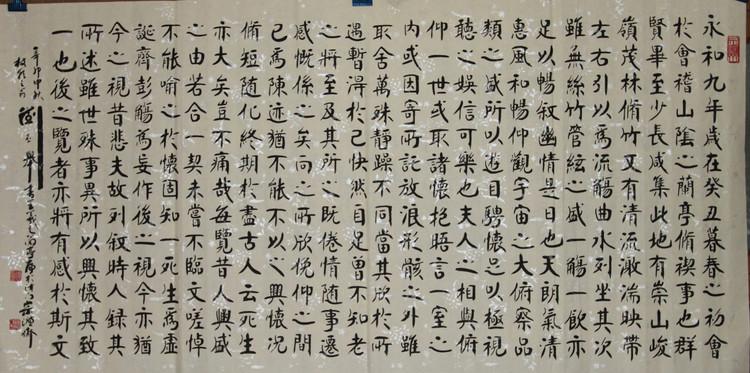 永和九年歲在癸丑暮春之初會
於會稽山陰之蘭亭脩禊事也群
賢畢至少長咸集此地有崇山峻
嶺茂林脩竹又有清流激湍映帶
左右引以為流觴曲水列坐其次
雖無絲竹管絃之盛一觴一飲亦
足以暢敘幽情是日也天朗氣清
惠風和暢仰觀宇宙之大俯察品
類之盛所以遊目騁懷足以極視
聽之娛信可樂也夫人之相與俯
仰一世或取諸懷抱晤言一室之
內或因寄所託放浪形骸之外雖
取舍萬殊靜躁不同當其欣於所
遇暫得於己快然自足曾不知老
之將至及其所之既倦情隨事遷
感慨係之矣向之所欣俛仰之間
已為陳迹猶不能不以之興懷況
脩短隨化終期於盡古人云死生
亦大矣豈不痛哉每覽昔人興感
之由若合一契未嘗不臨文嗟悼
不能喻之於懷固知一死生為虛
誕齊彭殤為妄作後之視今亦猶
今之視昔悲夫故列敘時人錄其
所述雖世殊事異所以興懷其致
一也後之覽者亦將有感於斯文
辛卯中秋